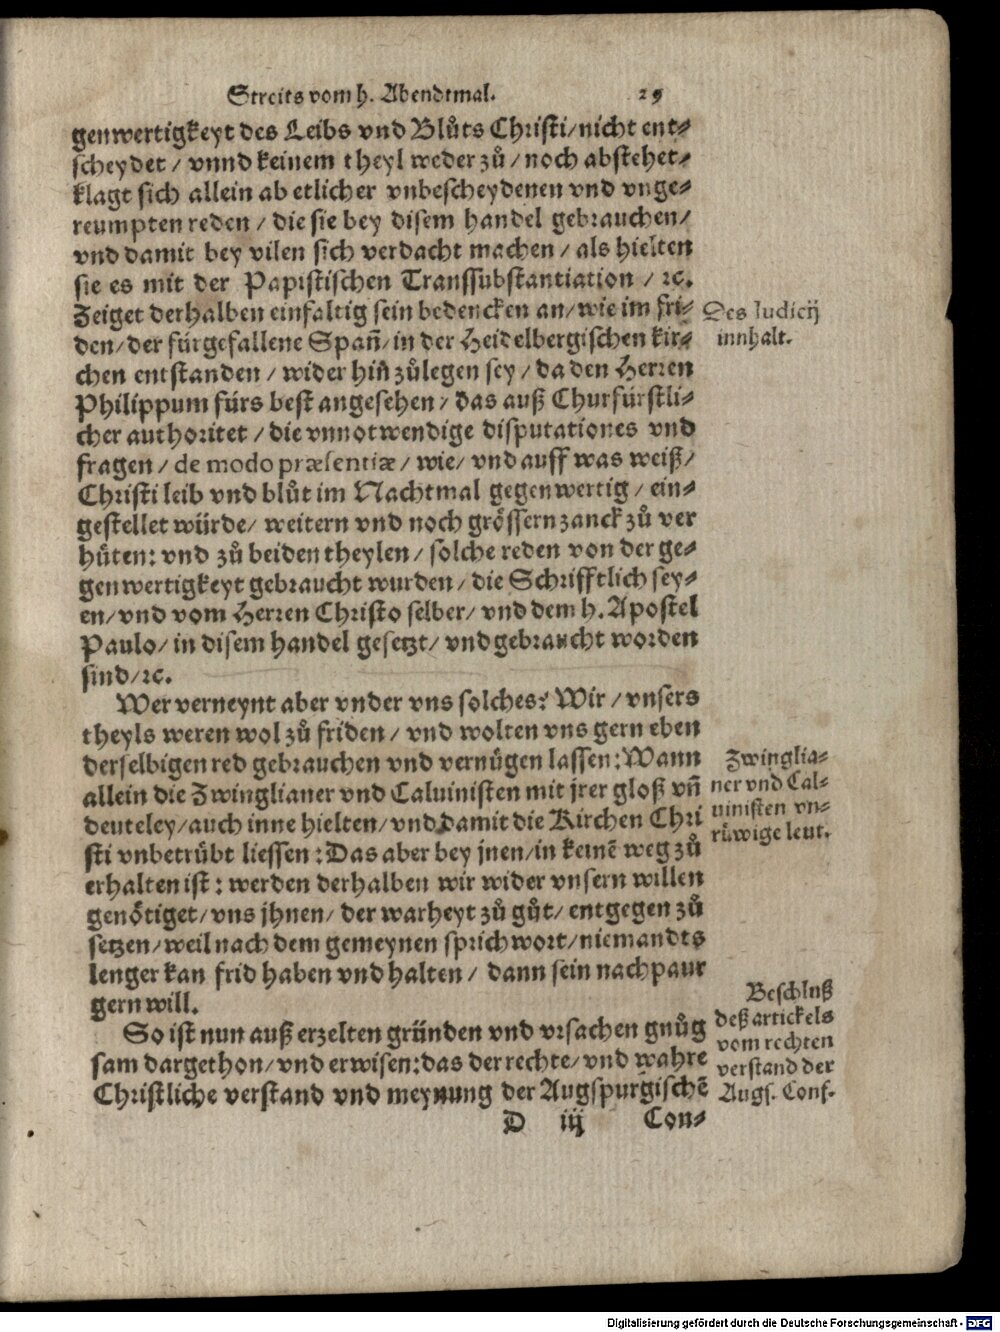 Streits vom h. Abendtmal. 29
genwertigkeyt des Leibs vnd Blůts Christi/nicht ent⸗
scheydet / vnnd keinem theyl weder zů / noch abstehet⸗
klagt sich allein ab etlicher vnbescheydenen vnd vnge⸗
reumpten reden / die sie bey disem handel gebrauchen/
vnd damit bey vilen sich verdacht machen / als hielten
sie es mit der Papistischen Transsubstantiation / ꝛc.
Zeiget derhalben einfaltig sein bedencken an/ wie im fri⸗
den/ der fürgefallene Spañ/ in der Heidelbergischen kir⸗
chen entstanden / wider hiñ zůlegen sey / da den Herren
Philippum fürs best angesehen / das auß Churfürstli⸗
cher authoritet / die vnnotwendige disputationes vnd
fragen / de modo præsentiæ / wie/ vnd auff was weiß/
Christi leib vnd blůt im Nachtmal gegenwertig / ein⸗
gestellet würde/ weitern vnd noch grössern zanck zů ver
hüten: vnd zů beiden theylen / solche reden von der ge⸗
genwertigkeyt gebraucht wurden / die Schrifftlich sey⸗
en/ vnd vom Herren Christo selber/ vnd dem h. Apostel
Paulo/ in disem handel gesetzt/ vnd gebraucht worden
sind/ꝛc.
Des Iudicij
innhalt.
Wer verneynt aber vnder vns solches? Wir / vnsers
theyls weren wol zů friden / vnd wolten vns gern eben
derselbigen red gebrauchen vnd vernügen lassen: Wann
allein die Zwinglianer vnd Caluinisten mit jrer gloß vñ
deuteley/ auch inne hielten/ vnd damit die Kirchen Chri
sti vnbetrübt liessen: Das aber bey jnen/ in keinē weg zů
erhalten ist: werden derhalben wir wider vnsern willen
genötiget/ vns jhnen/ der warheyt zů gůt/ entgegen zů
setzen/ weil nach dem gemeynen sprichwort/ niemandts
lenger kan frid haben vnd halten / dann sein nachpaur
gern will.
Zwinglia⸗
ner vnd Cal⸗
uinisten vn⸗
růwige leut.
So ist nun auß erzelten gründen vnd vrsachen gnůg
sam dargethon/ vnd erwisen: das der rechte/ vnd wahre
Christliche verstand vnd meynung der Augspurgischē
Beschluß
deß artickels
vom rechten
verstand der
Augs. Conf.
D iij Con⸗
Digitalisierung gefördert durch die Deutsche Forschungsgemeinschaft - DFG